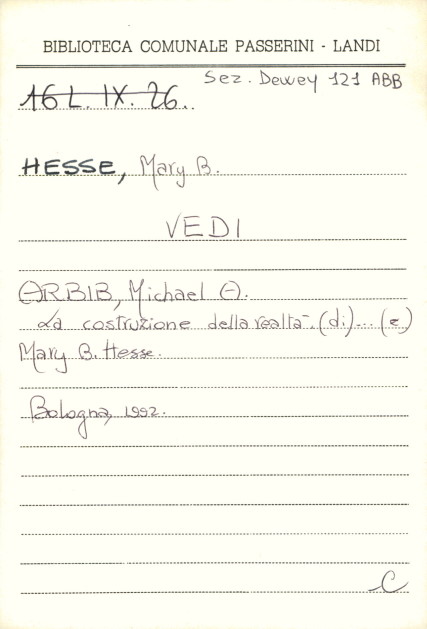 BIBLIOTECA COMUNALE PASSERINI - LANDI
Sez. Dewey 121 ABB
16 L. IX. 26.
HESSE, Mary B.
VEDI
ARBIB, Michael A.
La costruzione della realtà. (di)... (e)
Mary B. Hesse.
Bologna, 1992.
C